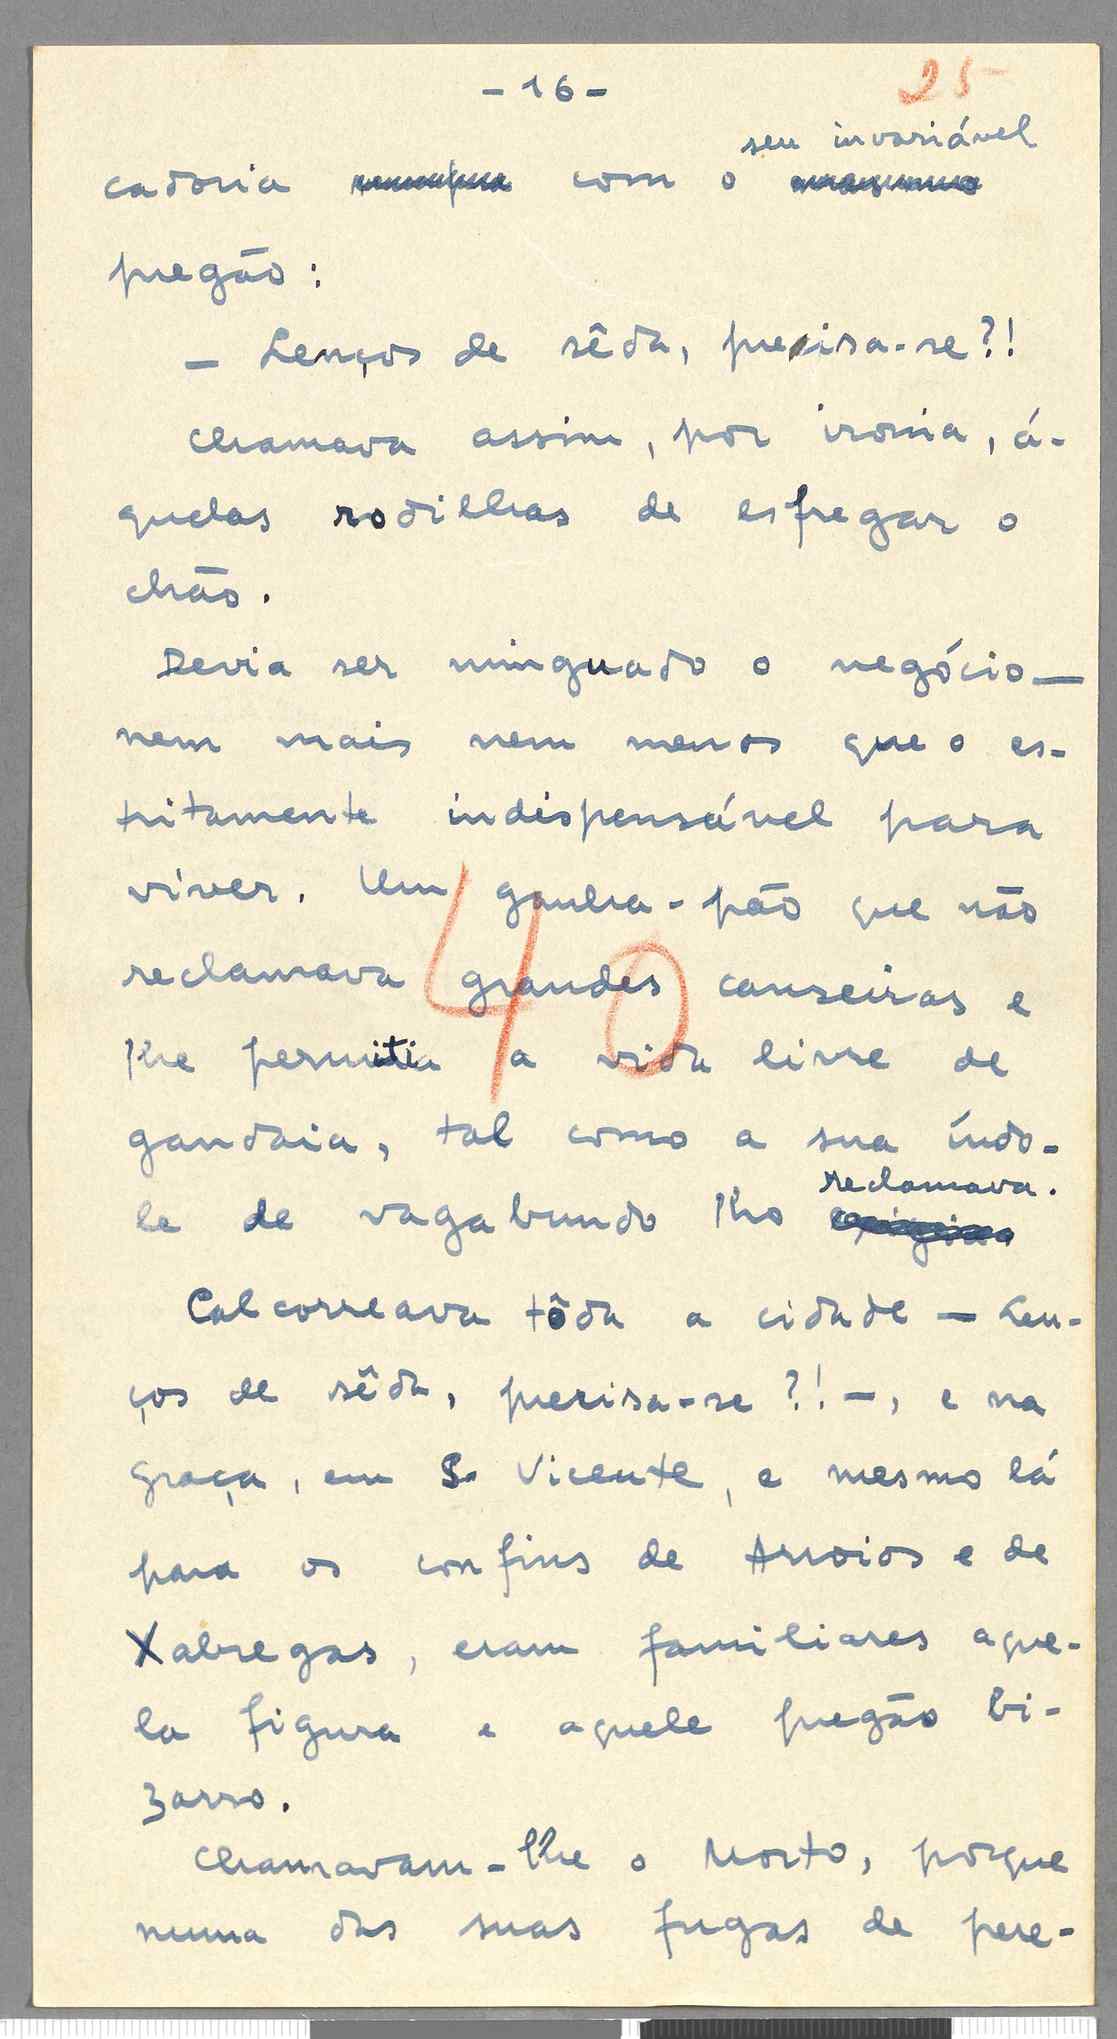 - 16 -
25
seu invariável
cadoria com o
pregão:
— Lenços de sêda, precisa-se?!
Chamava assim, por ironia, á-
quelas rodilhas de esfregar o
chão.
Devia ser minguado o negócio —
nem mais nem menos que o es-
tritamente indispensável para
viver. Um ganha-pão que não
reclamava grandes canseiras e
40
lhe permitia a vida livre de
gandaia, tal como a sua índo-
reclamava.
le de vagabundo lho
Calcorreava tôda a cidade — Len-
ços de sêda, precisa-se?! —, e na
Graça, em S. Vicente, e mesmo lá
para os confins de Arroios e de
Xabregas, eram familiares aque-
la figura e aquele pregão bi-
zarro.
Chamavam-lhe o Morto, porque
numa das suas fugas de pere-